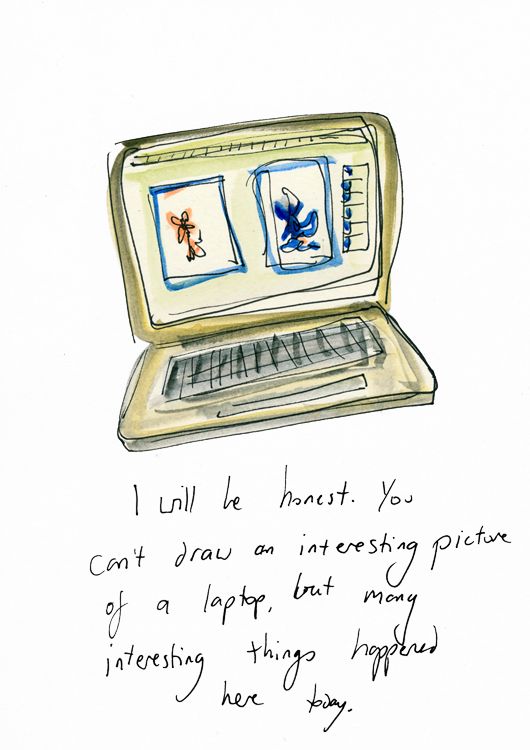 I will be honest. You
can't draw an interesting picture
of a laptop, but many
interesting things happened
here today.